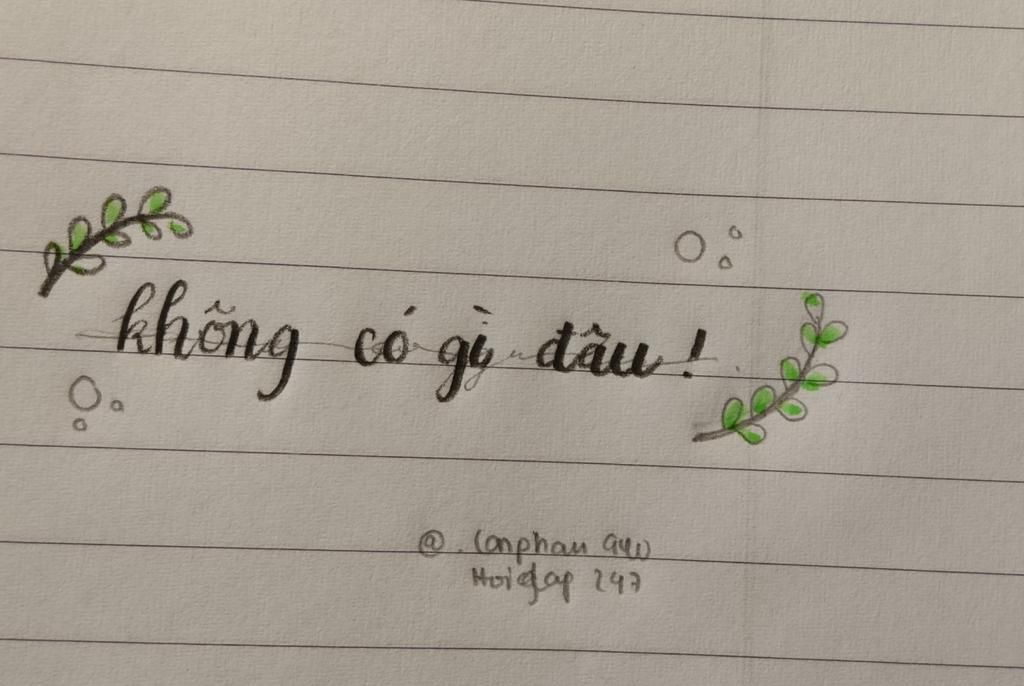 không có gì đâu!
@. lanphan940
Hoidap 247